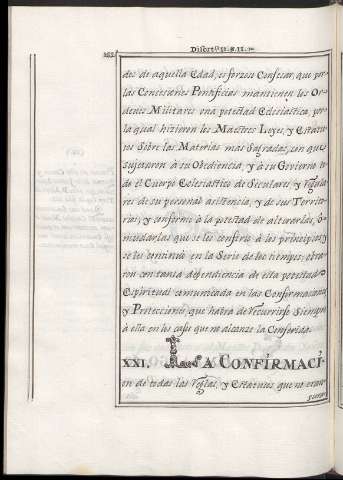 Disert.n II. §. II.
des de aquella Edad, es forzoso Confesar, que por
las Concesiones Pontificias mantienen los Or-
denes Militares una potestad Eclesiastica, por
la qual hizieron los Maestres Leyes, y Estatu-
tos Sobre las Materias mas Sagradas, con que
sujetaron à su Obediencia, y à su Govierno to-
do el Cuerpo Eclesiastico de Seculares, y Regula-
res de su personal asistencia, y de sus Territo-
rios; y conforme à la potestad de alterarlas, ò
mudarlas que se les confirió à los principios, y
se les continuò en la Serie de los tiempos; obra-
ron con tanta dependiencia de esta potestad
Espiritual comunicada en las Confirmaciones
y Proteccion, que havra de Recurrirse Siempre
à ella en los casos que no alcanze la Conferida.
XXI. LA CONFIRMACI-
on de todas las Reglas, y Estatutos que no eran